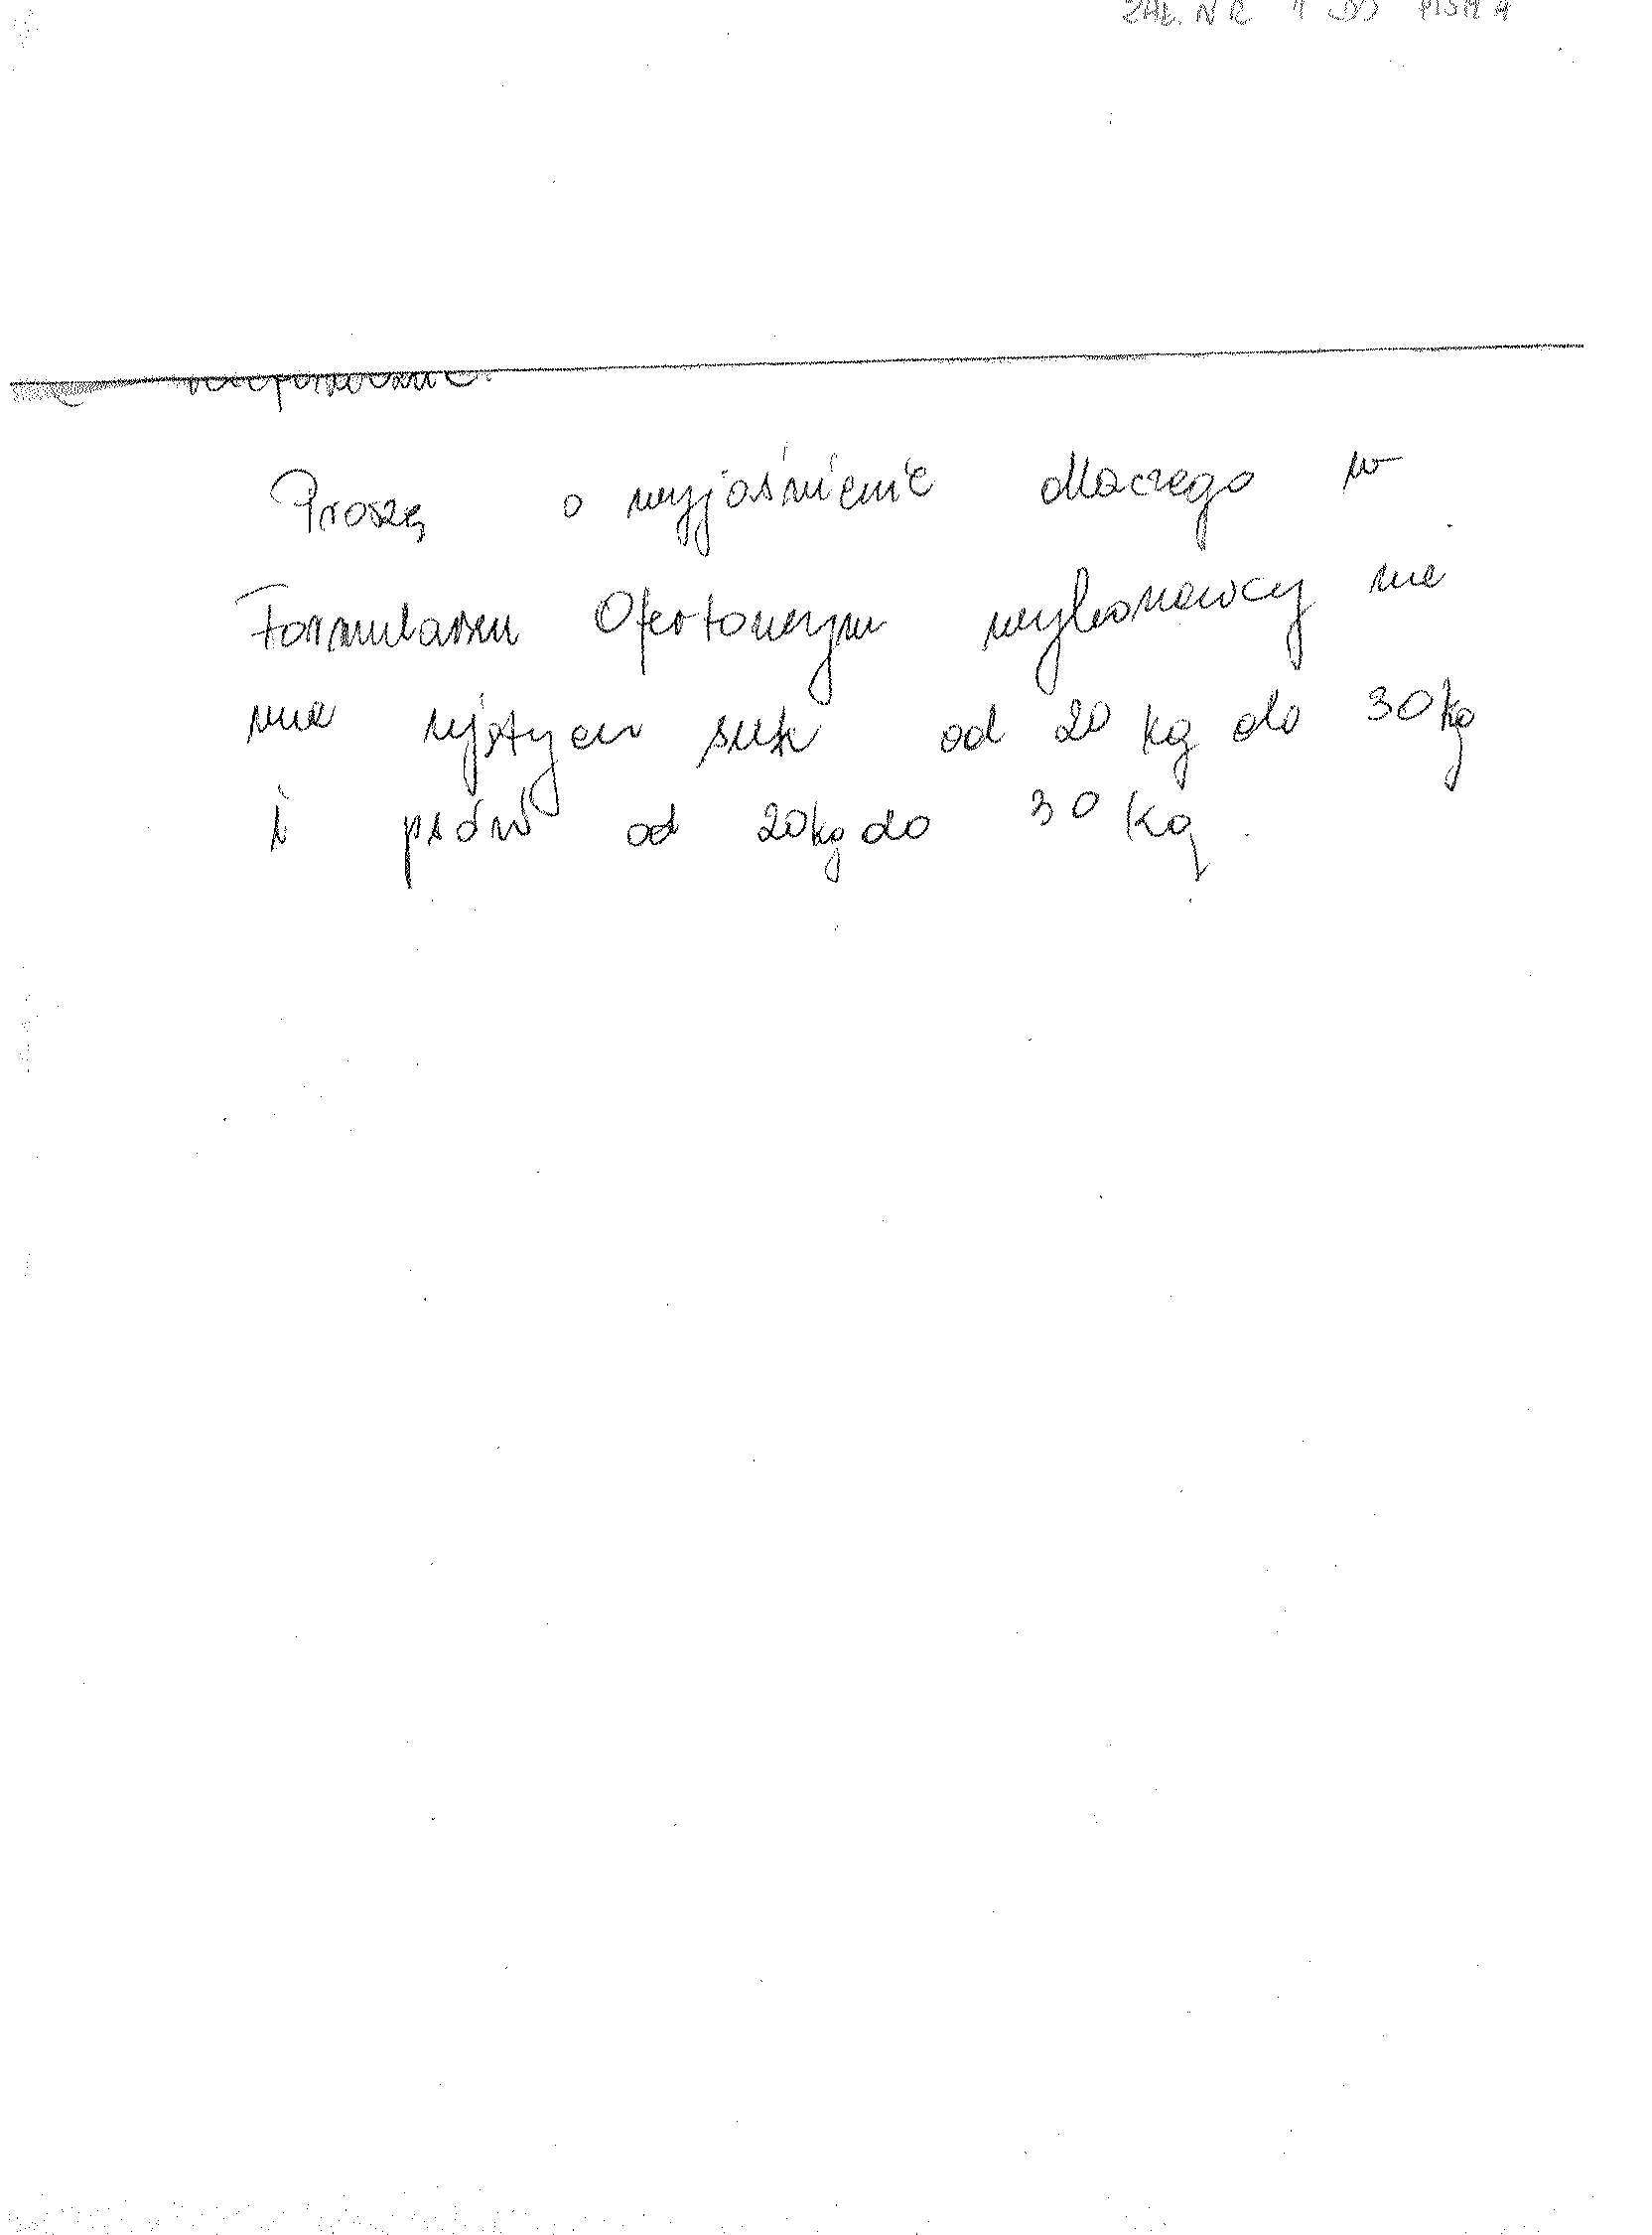 ZAŁ. NR 1 DO PISMA
Proszę o wyjaśnienie dlaczego w
Formularzu Ofertowym wykonawcy nie
ma ujętych suk od 20 kg do 30 kg
i psów od 20 kg do 30 kg.